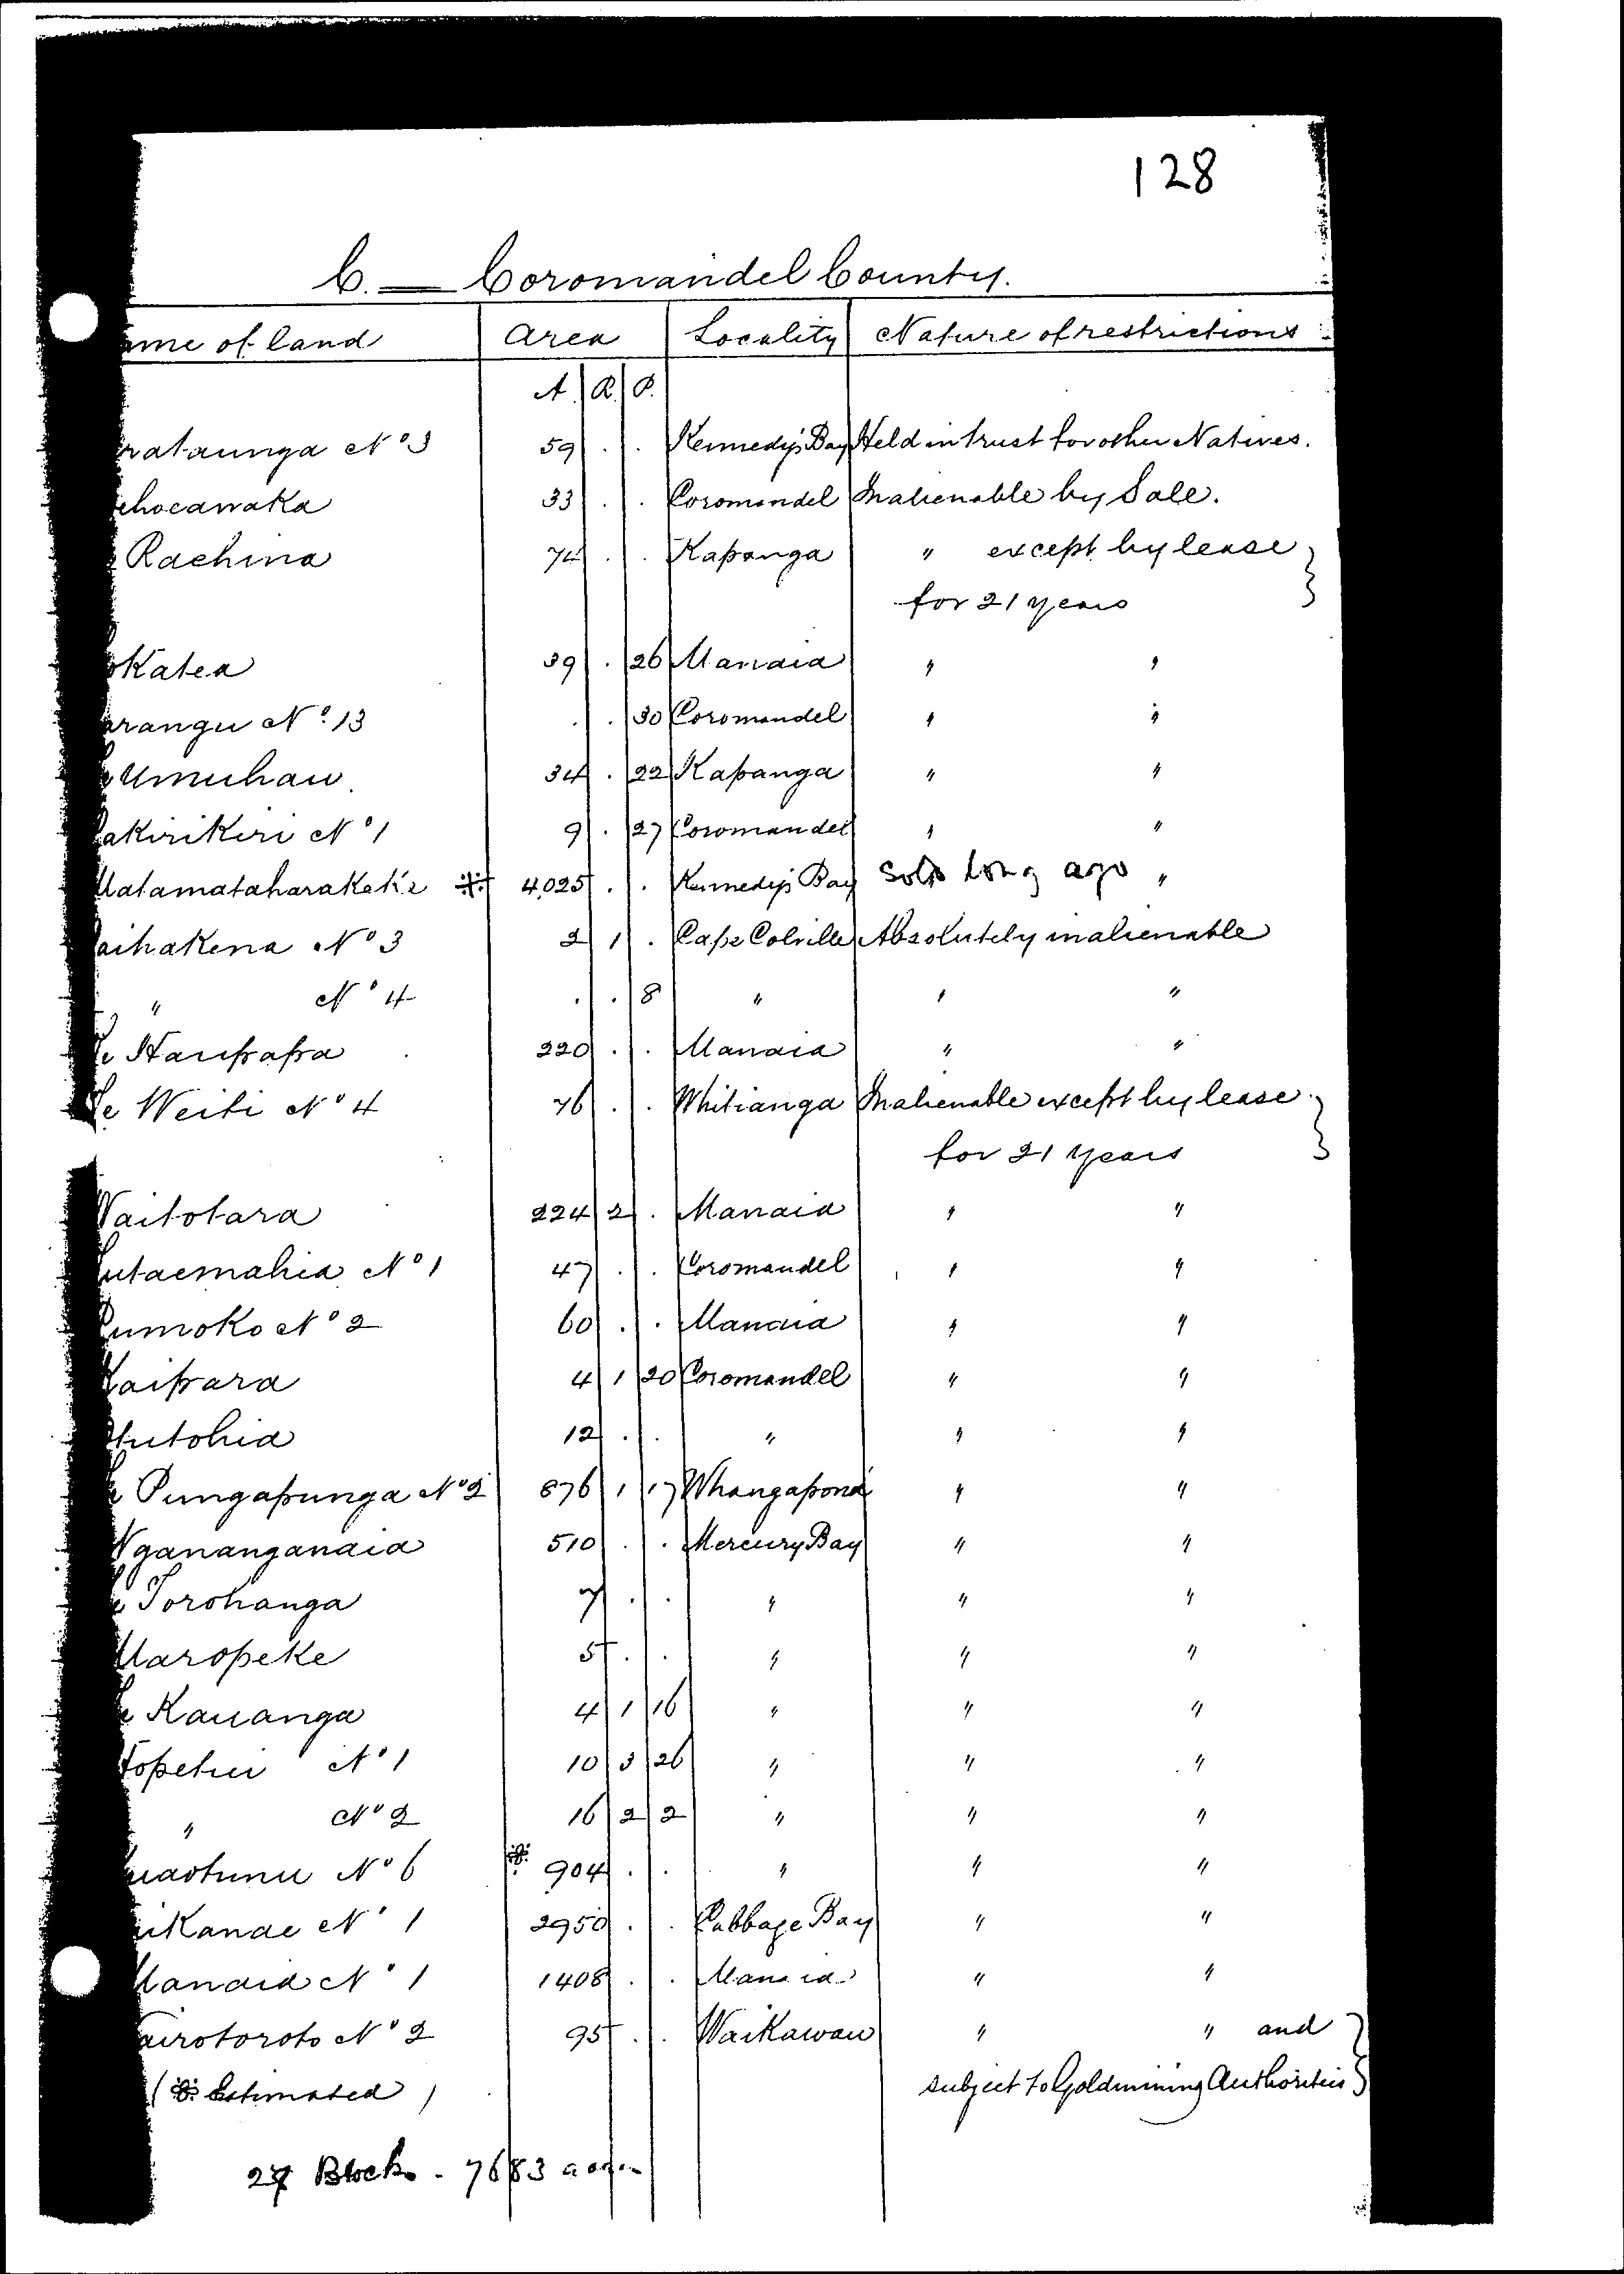 128
C. — Coromandel County.
ame of land Area Locality Nature of restrictions
A. R. P.
rataunga No 3 59 . . Kennedy's Bay Held in trust for other Natives.
33 . . Coromandel Inalienable by Sale.
Rachina 74 . . Kapanga " except by lease }
for 21 years
okatea 39 . 26 Manaia " "
arangu No. 13 . . 30 Coromandel " "
Umuhau 34 . 22 Kapanga " "
akirikiri No 1 9 . 27 Coromandel " "
Matamataharakeke * 4,025 . . Kennedy's Bay Sold long ago "
aihakena No 3 2 1 . Cape Colville Absolutely inalienable
" No 4 . . 8 " " "
Te Haupapa 220 . . Manaia " "
Te Weiti No 4 76 . . Whitianga Inalienable except by lease }
for 21 years
Waitotara 224 2 . Manaia " "
utaemahia No 1 47 . . Coromandel " "
umoko No 2 60 . . Manaia " "
Kaipara 4 1 20 Coromandel " "
hutohia 12 . . " " "
e Pungapunga No 2 876 1 17 Whangapoua " "
Ngananganaia 510 . . Mercury Bay " "
e Torohanga 7 . . " " "
Maropeke 5 . . " " "
e Kauanga 4 1 16 " " "
opehu No 1 10 3 26 " " "
" No 2 16 2 2 " " "
uaotunu No 6 * 904 . . " " "
ikanae No 1 2950 . . Cabbage Bay " "
Manaia No 1 1408 . . Manaia " "
airotoroto No 2 95 . . Waikawau " " and }
(* Estimated) subject to Goldmining Authorities
27 Blocks - 7683 acres